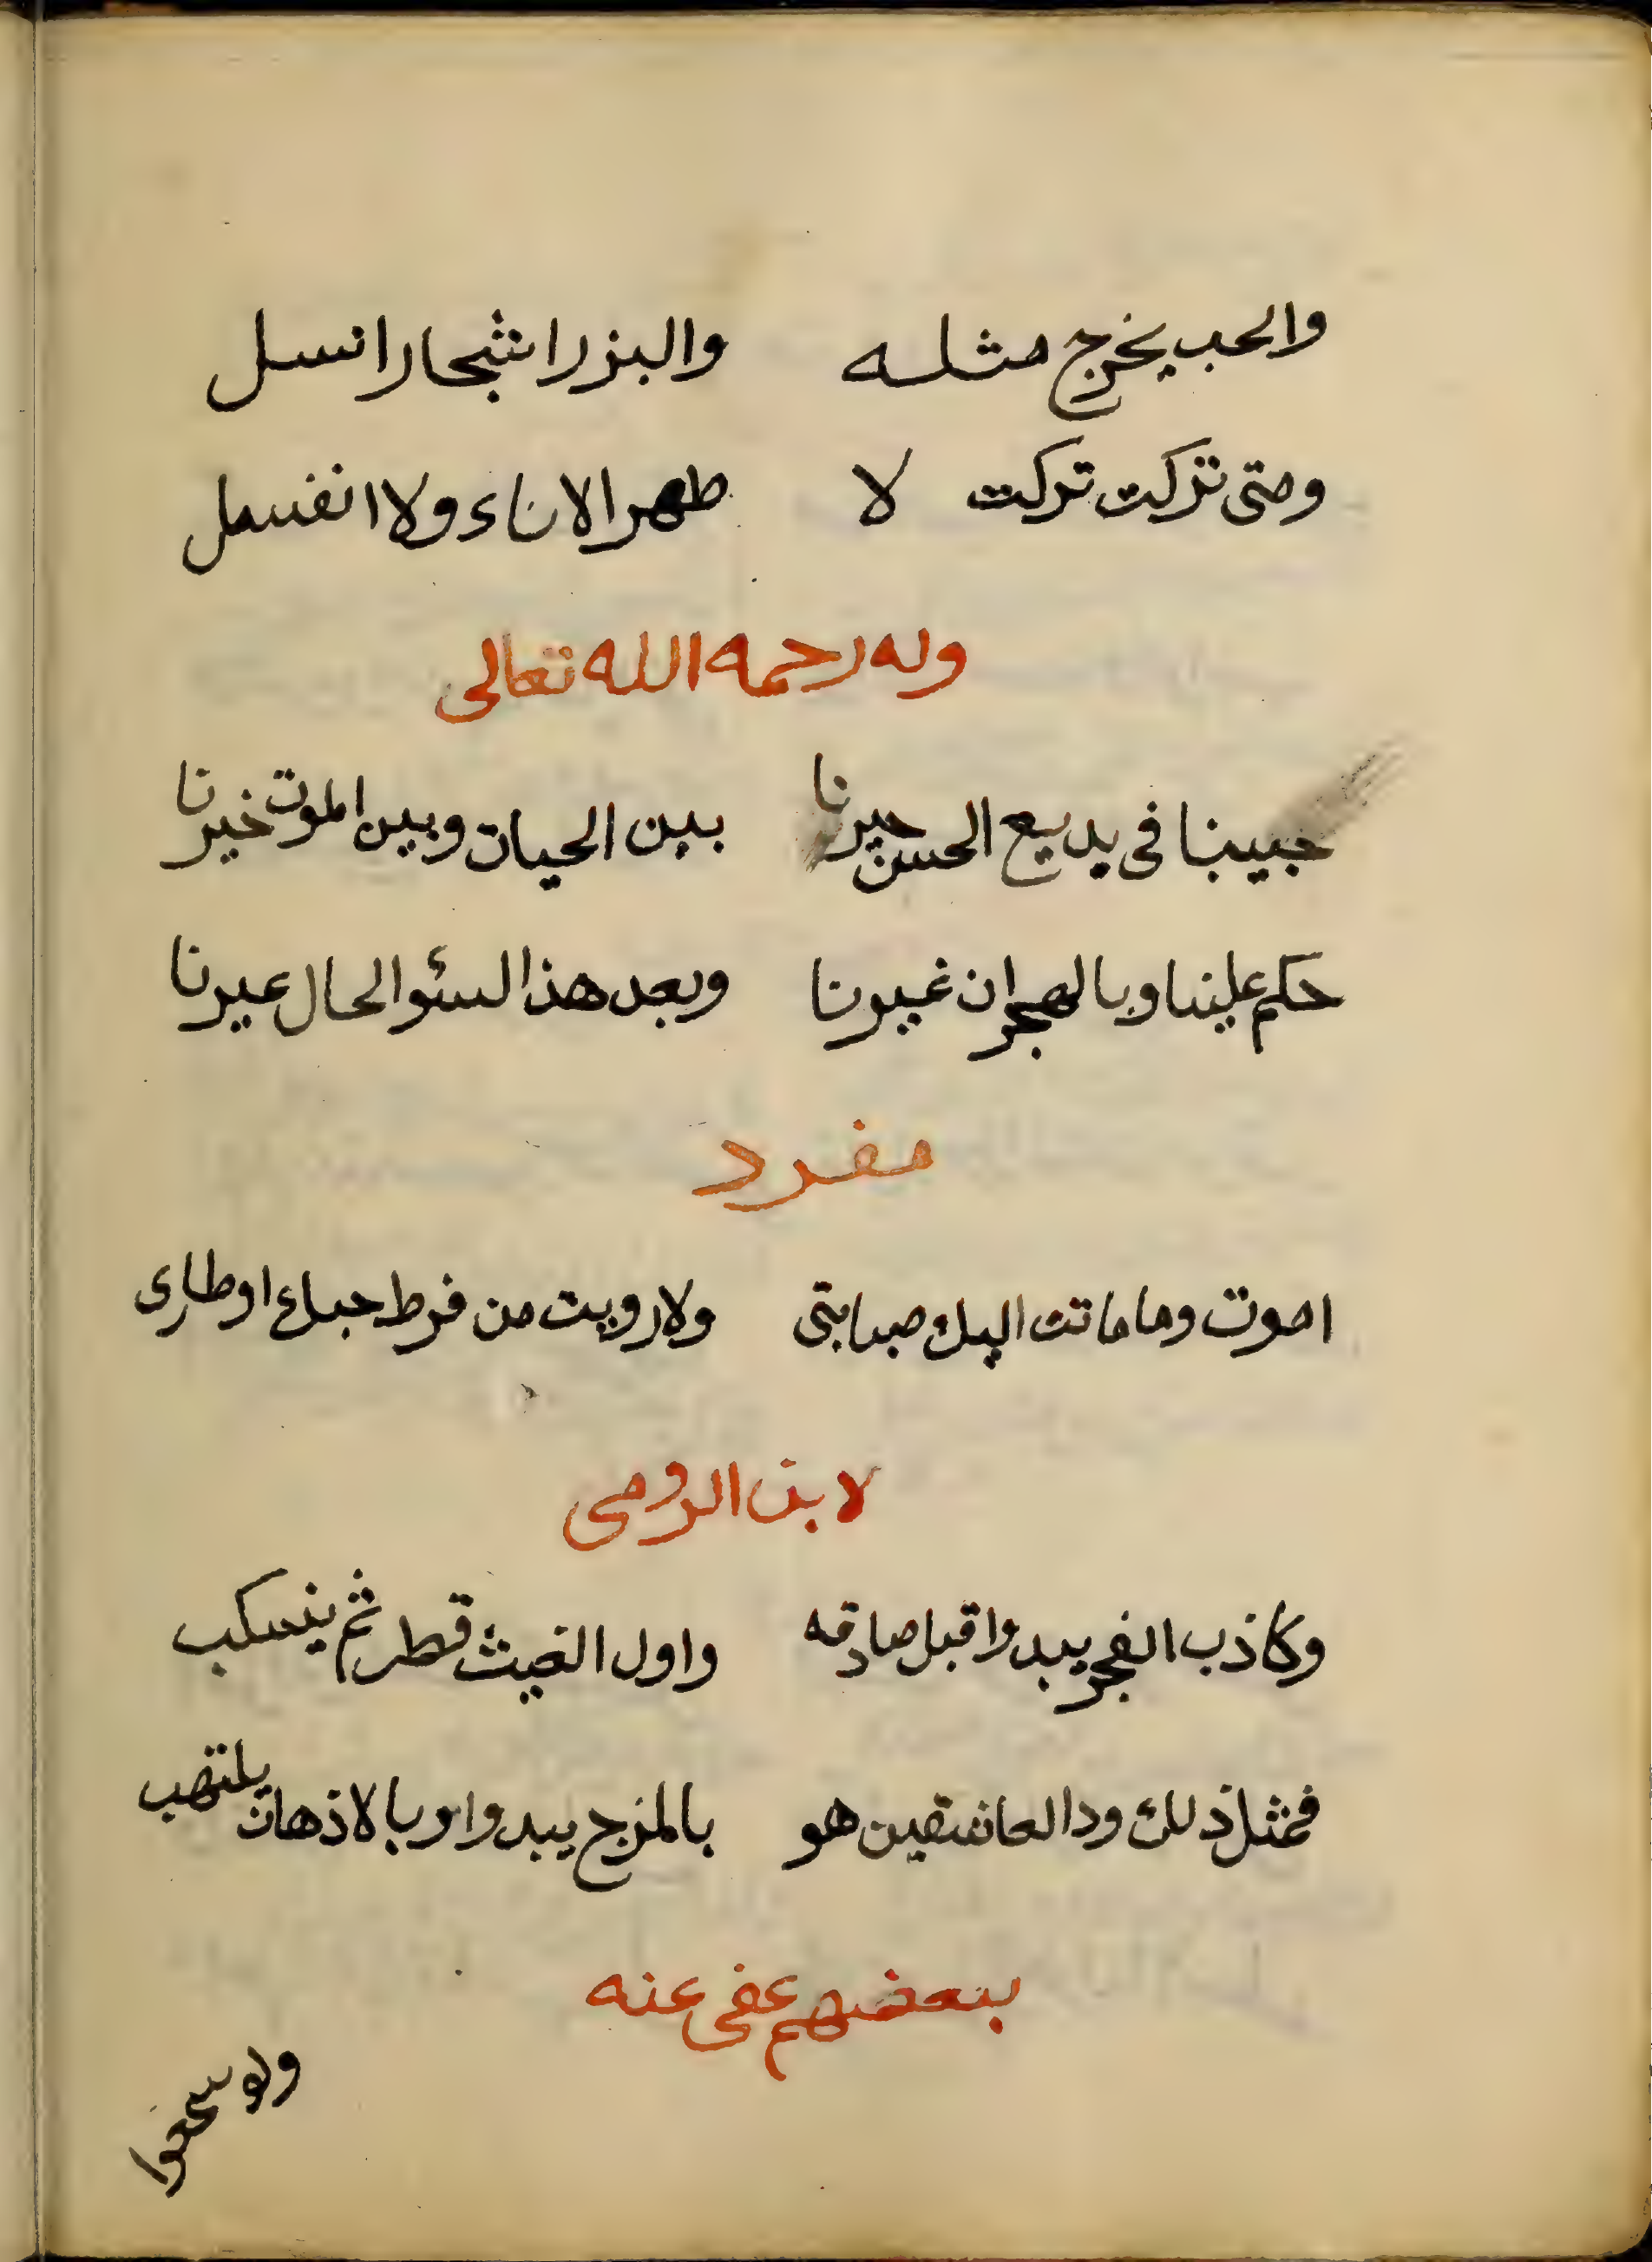 والحب يخرج مثله والبزر اشجارا نسل
ومتى تركت تركت لا طهر الاناء ولا انغسل
وله رحمه الله تعالى
حبيبنا فى بديع الحسن حيرنا بين الحيات وبين الموت خيرنا
حكم علينا وبالهجران غيرنا وبعد هذا لسئو الحال عيرنا
مفرد
اموت وما ماتت اليك صبابتى ولا رويت من فرط حبك اوطارى
لابن الرومى
وكاذب الفجر يبدوا قبل صادقه واول الغيث قطر ثم ينسكب
فمثل ذلك ود العاشقين هو بالمزج يبدوا وبالاذهان يلتهب
بعضهم عفى عنه
ولو سمعوا